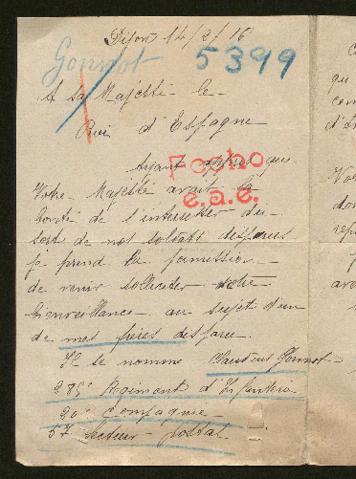 Dijon 14/2/16
Gonnot
5399
A sa Majesté le
Roi d'Espagne
Ayant appris que
Fecho
e.a.e.
Votre Majesté avait la
bonté de l'interesser du
sort de nos soldats disparus
je prend la permission
de venir solliciter votre
bienveillance au sujet d'un
de mes frères disparu
Il se nomme Gonnot
285e Regiment d'Infanterie
20e Compagnie
57 Secteur postal